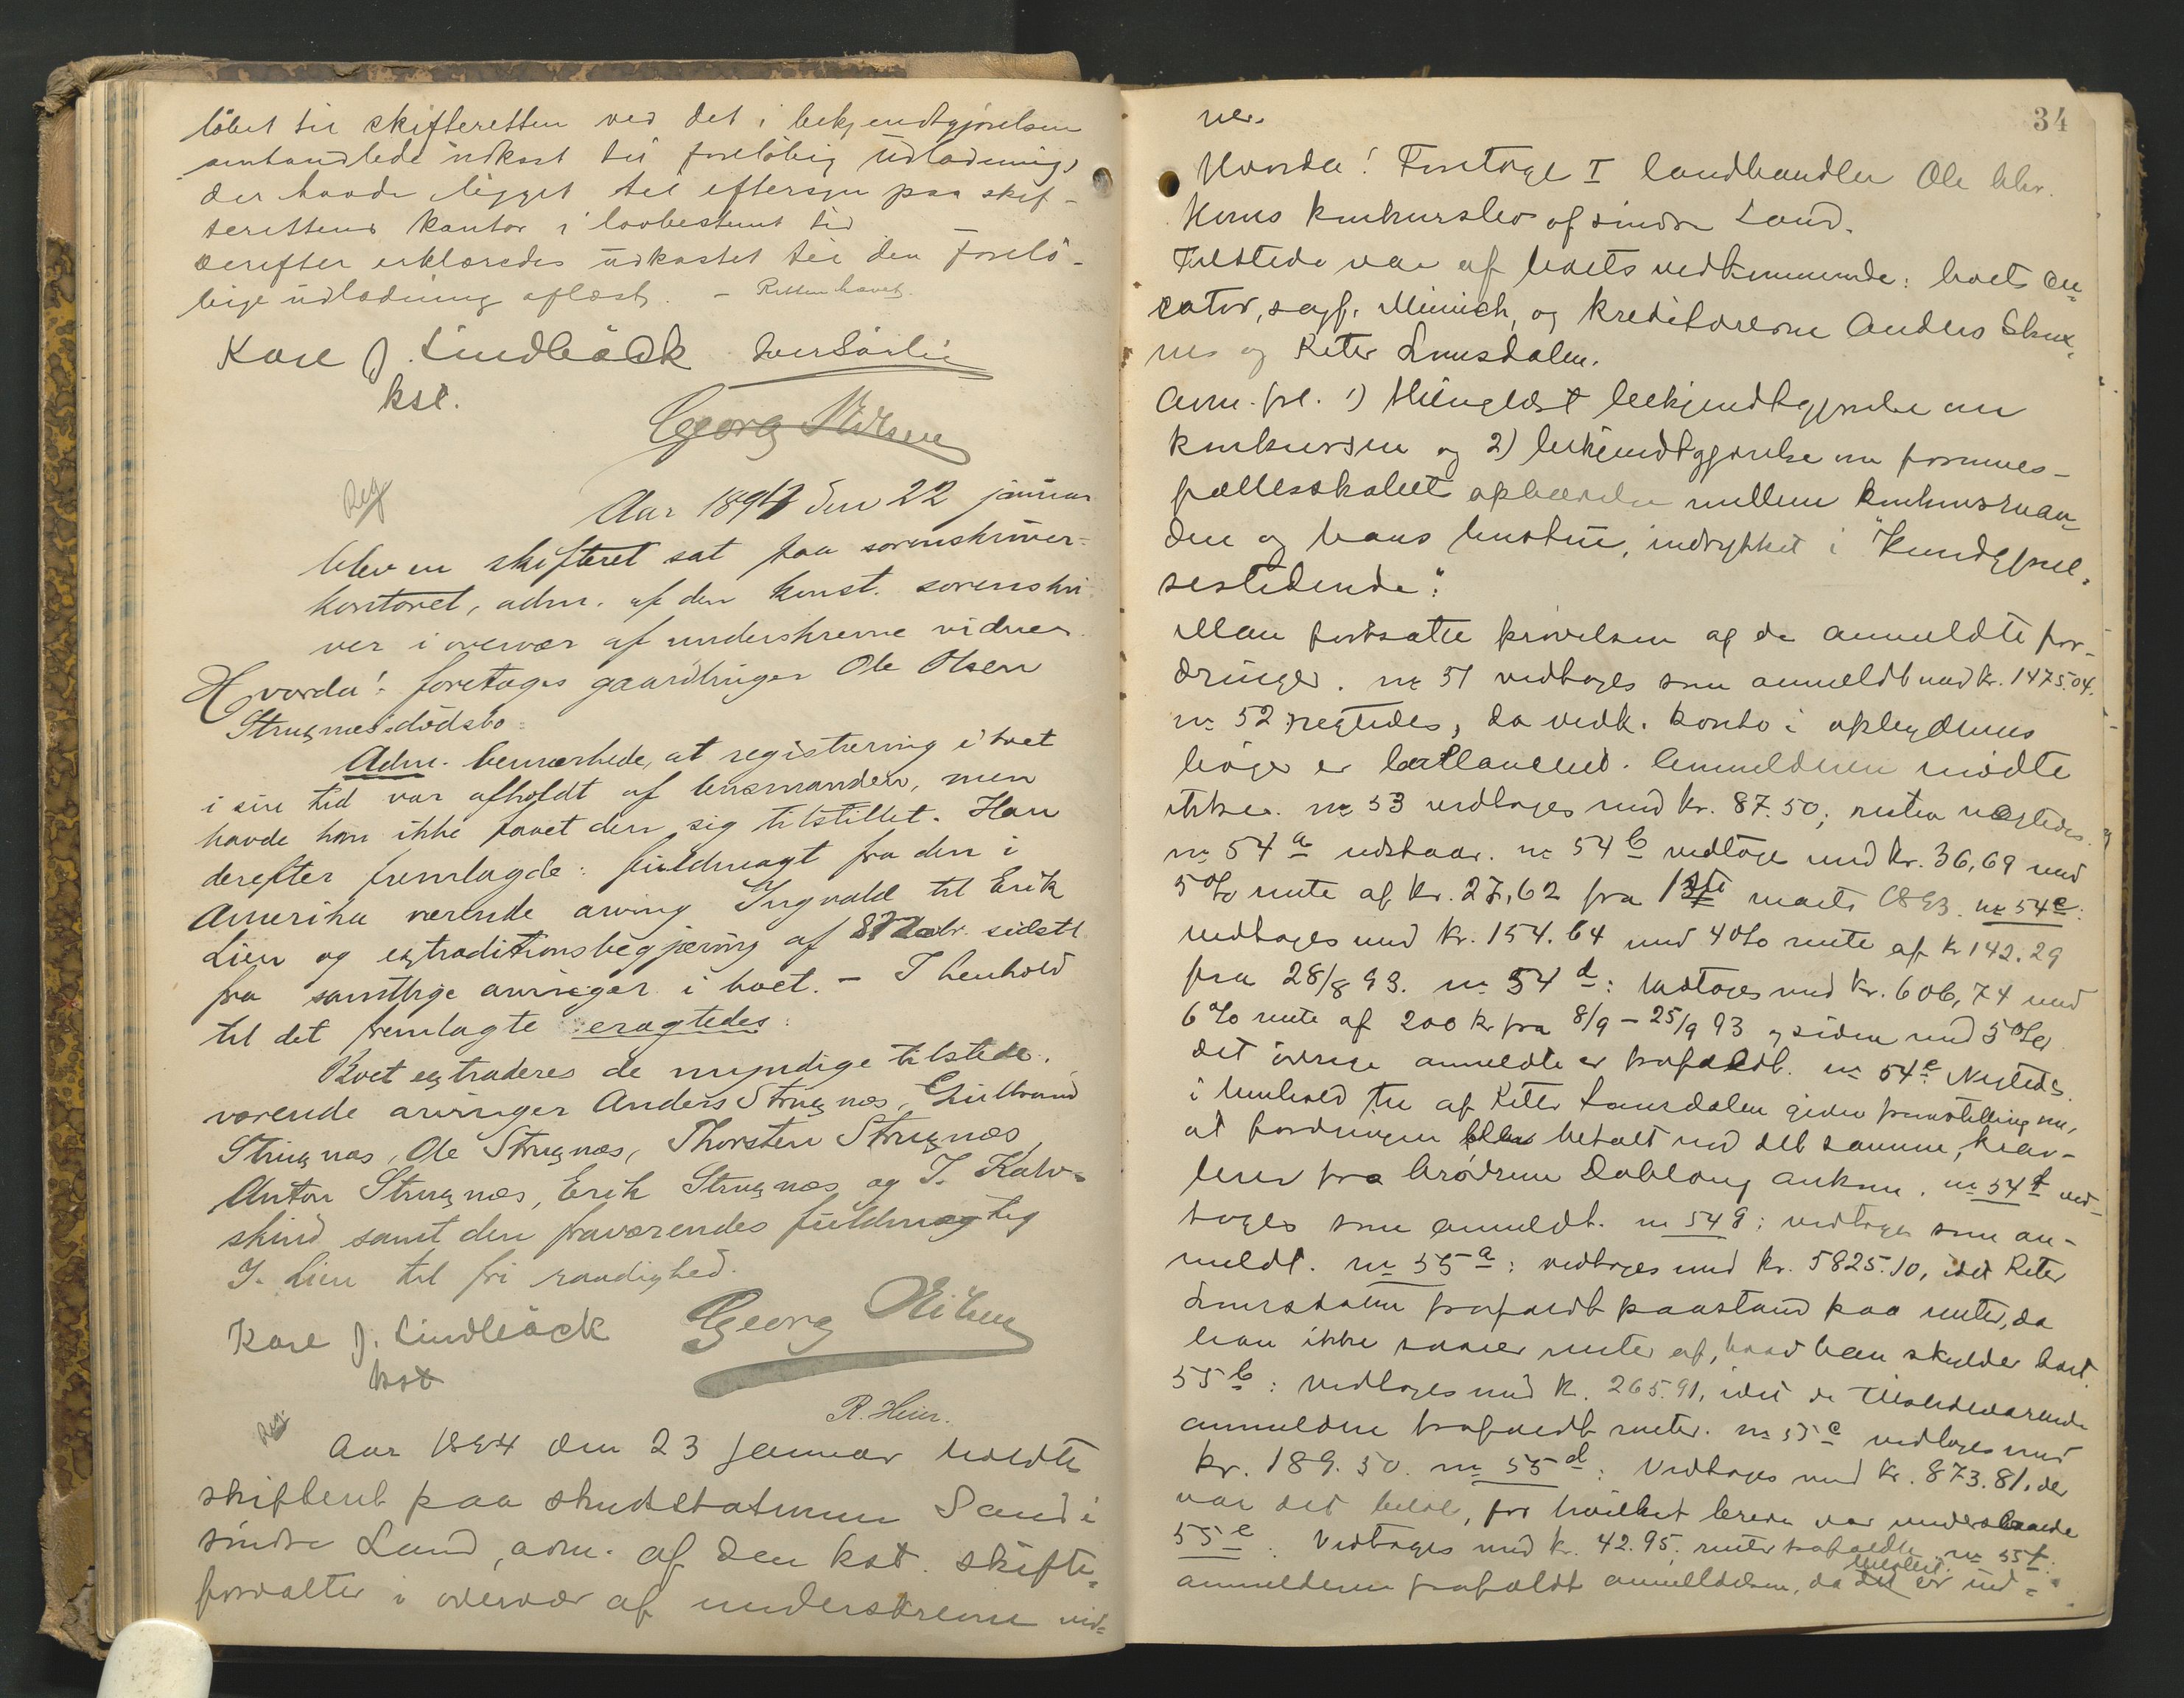 löbet til skifteretten ved det i bekjendtgjörelsen
omhandlede udkast til forelöbig udlodning,
der havde ligget til eftersyn paa skif-
terettens kontor i lovbestemt tid
Derefter erklæredes udkastet til den forelö-
bige udlodning oplæst. - Retten hævet.
Kare J. Lindbäck
kst.
Georg Nilsen
Reg
Aar 1894 den 22 januar
blev en skifteret sat paa sorenskriver-
kontoret, adm. af den konst. sorenskri
ver i overvær af underskrevne vidner.
Hvorda! foretoges gaardbruger Ole Olsen
Strugnæs dödsbo:
Adm. bemærkede, at registrering i boet
i sin tid var afholdt af lensmanden, men
havde han ikke faaet den sig tilstillet. Han
derefter fremlagde: fuldmagt fra den i
Amerika værende arving Ingvald til Erik
Lien og extraditionsbegjæring af sidstl.
fra samtlige arvinger i boet. - I henhold
til det fremlagte eragtedes:
Boet extraderes de myndige tilstede-
værende arvinger Anders Strugnæs, Gulbrand
Strugnæs, Ole Strugnæs, Thorsten Strugnæs,
Anton Strugnæs, Erik Strugnæs og I. Kalv-
skind samt den fraværendes fuldmægtig
I. Lien til fri raadighed.
Kare J. Lindbäck Georg Nilsen
kst
R. Heier.
Reg
Aar 1894 den 23 januar holdtes
skifteret paa skudstationen Sand i
söndre Land, adm. af den kst. skifte-
forvalter i overvær af underskrevne vid-
34
ner.
Hvorda! Foretoges I landhandler Ole Chr.
Horns konkursbo af söndre Land.
Tilstede var af boets vedkommende: boets cu-
rator, sagf. Minich, og kreditorerne Anders Skux-
nes og Peter Lunsdalen.
Adm. frl. 1) thinglæst bekjendtgjörelse om
konkursen og 2) bekjendtgjörelse om formues-
fællesskabets ophævelse mellem konkursman-
den og hans hustru, indrykket i "Kundgjörel-
sestidende".
Man fortsatte prövelsen af de anmeldte for-
dringer. no 51 vedtoges som anmeldt med kr. 1475.04.
no 52 negtedes, da vedk. konto i opbydernes
böger er balanceret. Anmelderen mödte
ikke. no 53 vedtoges med kr. 87.50, resten negtedes.
no 54 a udstaar. no 54 b vedtoges med kr. 36,69 med
5 % rente af kr. 27,62 fra 1ste marts 1893. no 54 c:
vedtoges med kr. 154.64 med 4 % rente af kr 142.29
fra 28/8 93. no 54 d: vedtoges med kr. 606,74 med
6 % rente af 200 kr. fra 8/9 - 25/9 93 og siden med 5 %
det övrige anmeldte er frafaldt. no 54 e Negtedes
i henhold til af Peter Lunsdalen given fremstilling om,
at fordringen blev betalt ved det samme, krav-
brev fra brödrene Dobloug ankom. no 54 f ved-
toges som anmeldt. no 54 g: vedtoges som an-
meldt. no 55 a: vedtoges med kr. 5825.10, idet Peter
Lunsdalen frafaldt paastand paa renter, da
han ikke svarer renter af, hvad han skylder boet.
55 b: vedtoges med kr. 265.91, idet de tilstedeværende
anmeldere frafaldt renter. no 55 c vedtoges med
kr. 189.50. no 55 d: Vedtoges med kr. 873.81, der
var det belöb, for hvilket breve var underskrevne
55 e: Vedtoges med kr. 42.95, renter frafaldtes. no 55 f:
anmelderen frafaldt anmeldelsen, da det er ind-